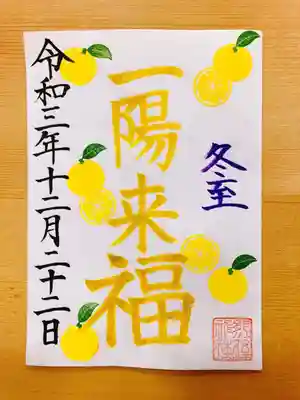 冬至
一陽来福
令和三年十二月二十二日